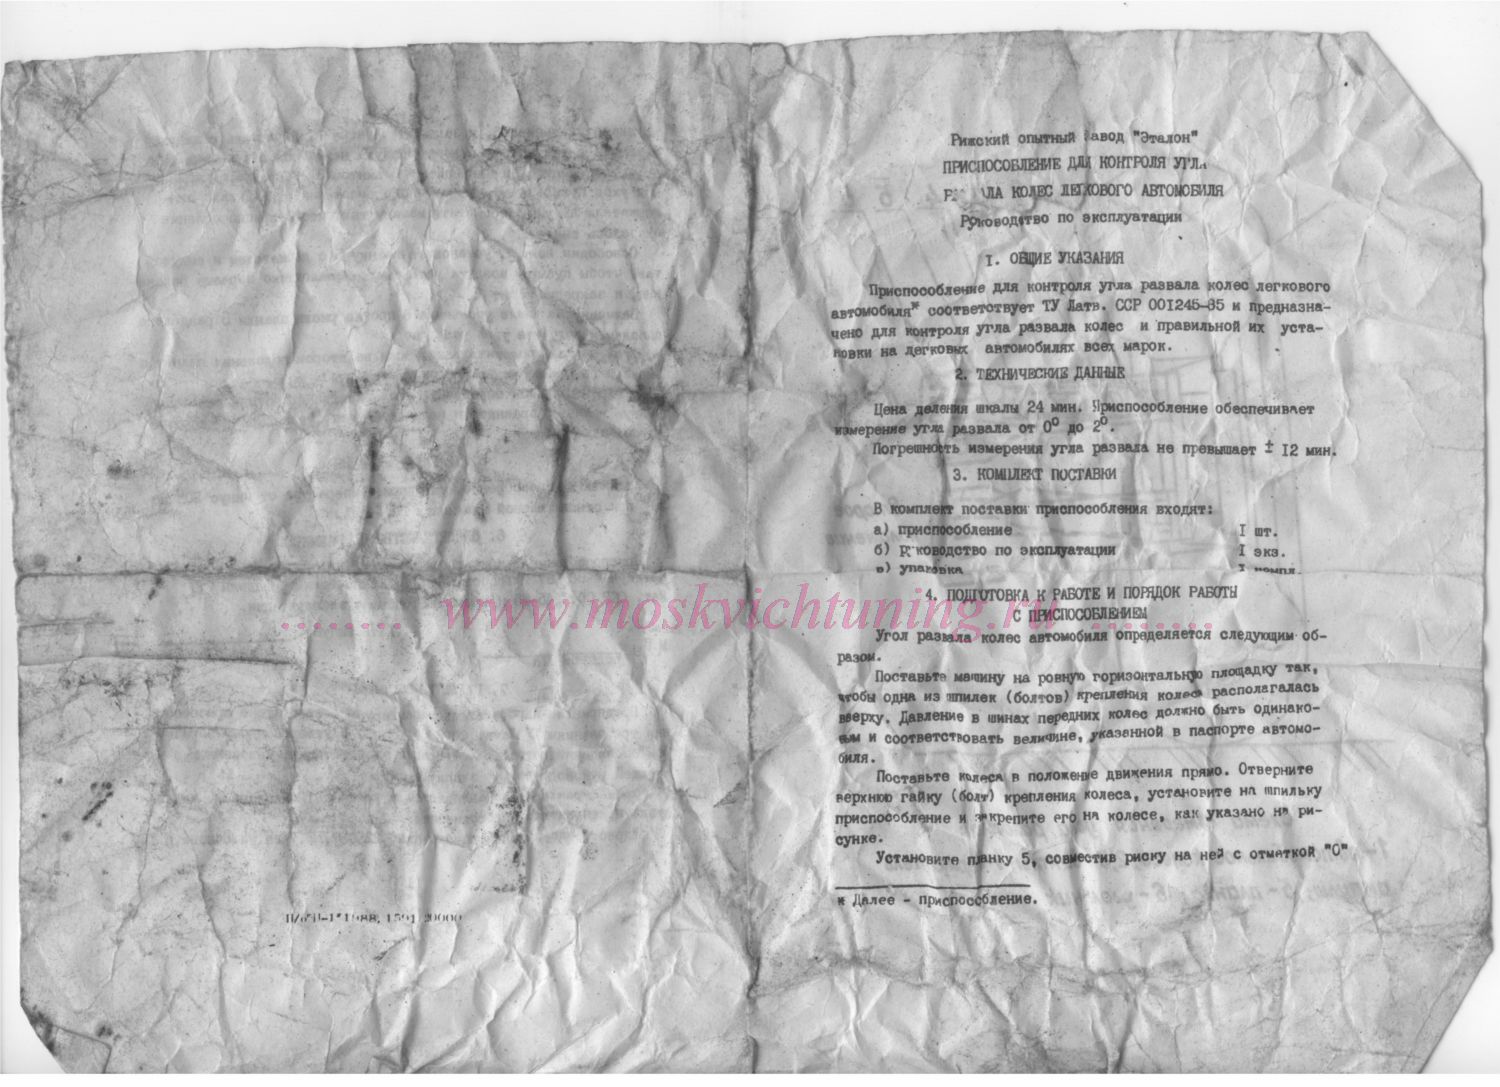 Рижский опытный завод "Эталон"
ПРИСПОСОБЛЕНИЕ ДЛЯ КОНТРОЛЯ УГЛА
РАЗВАЛА КОЛЕС ЛЕГКОВОГО АВТОМОБИЛЯ
Руководство по эксплуатации
I. ОБЩИЕ УКАЗАНИЯ
Приспособление для контроля угла развала колес легкового
автомобиля* соответствует ТУ Латв. ССР 001245-85 и предназна-
чено для контроля угла развала колес и правильной их уста-
новки на легковых автомобилях всех марок.
2. ТЕХНИЧЕСКИЕ ДАННЫЕ
Цена деления шкалы 24 мин. Приспособление обеспечивает
измерение угла развала от 0° до 2°.
Погрешность измерения угла развала не превышает ± 12 мин.
3. КОМПЛЕКТ ПОСТАВКИ
В комплект поставки приспособления входят:
а) приспособление I шт.
б) руководство по эксплуатации I экз.
в) упаковка I компл.
4. ПОДГОТОВКА К РАБОТЕ И ПОРЯДОК РАБОТЫ
С ПРИСПОСОБЛЕНИЕМ
........ www.moskvichtuning.ru ........
Угол развала колес автомобиля определяется следующим об-
разом.
Поставьте машину на ровную горизонтальную площадку так,
чтобы одна из шпилек (болтов) крепления колеса располагалась
вверху. Давление в шинах передних колес должно быть одинако-
вым и соответствовать величине, указанной в паспорте автомо-
биля.
Поставьте колеса в положение движения прямо. Отверните
верхнюю гайку (болт) крепления колеса, установите на шпильку
приспособление и закрепите его на колесе, как указано на ри-
сунке.
Установите планку 5, совместив риску на ней с отметкой "0"
* Далее - приспособление.
1988, 1591 20000